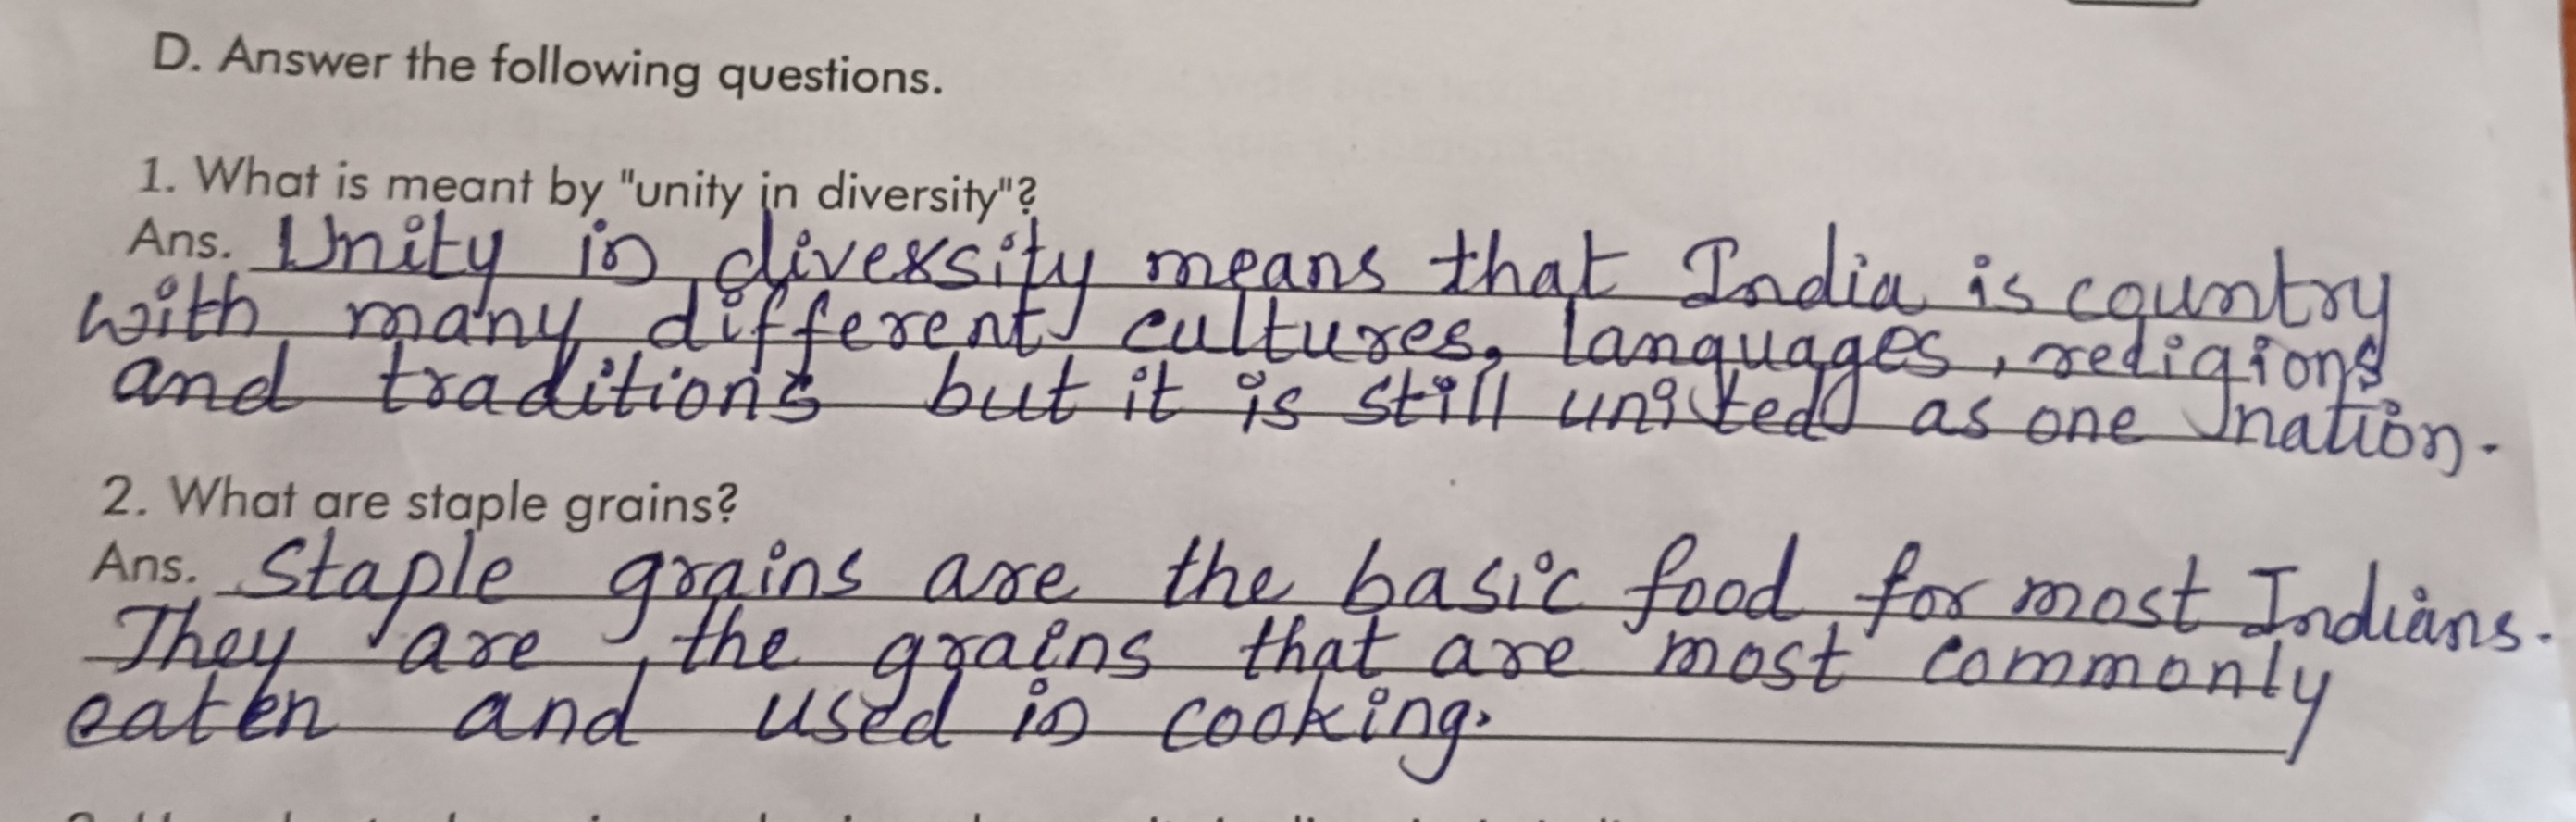 D. Answer the following questions.
1. What is meant by "unity in diversity"?
Ans. Unity in diversity means that India is country
with many different cultures, languages, redigions
and traditions but it is still united as one nation.
2. What are staple grains?
Ans. Staple grains are the basic food for most Indians.
They are the grains that are most commonly
eaten and used in cooking.